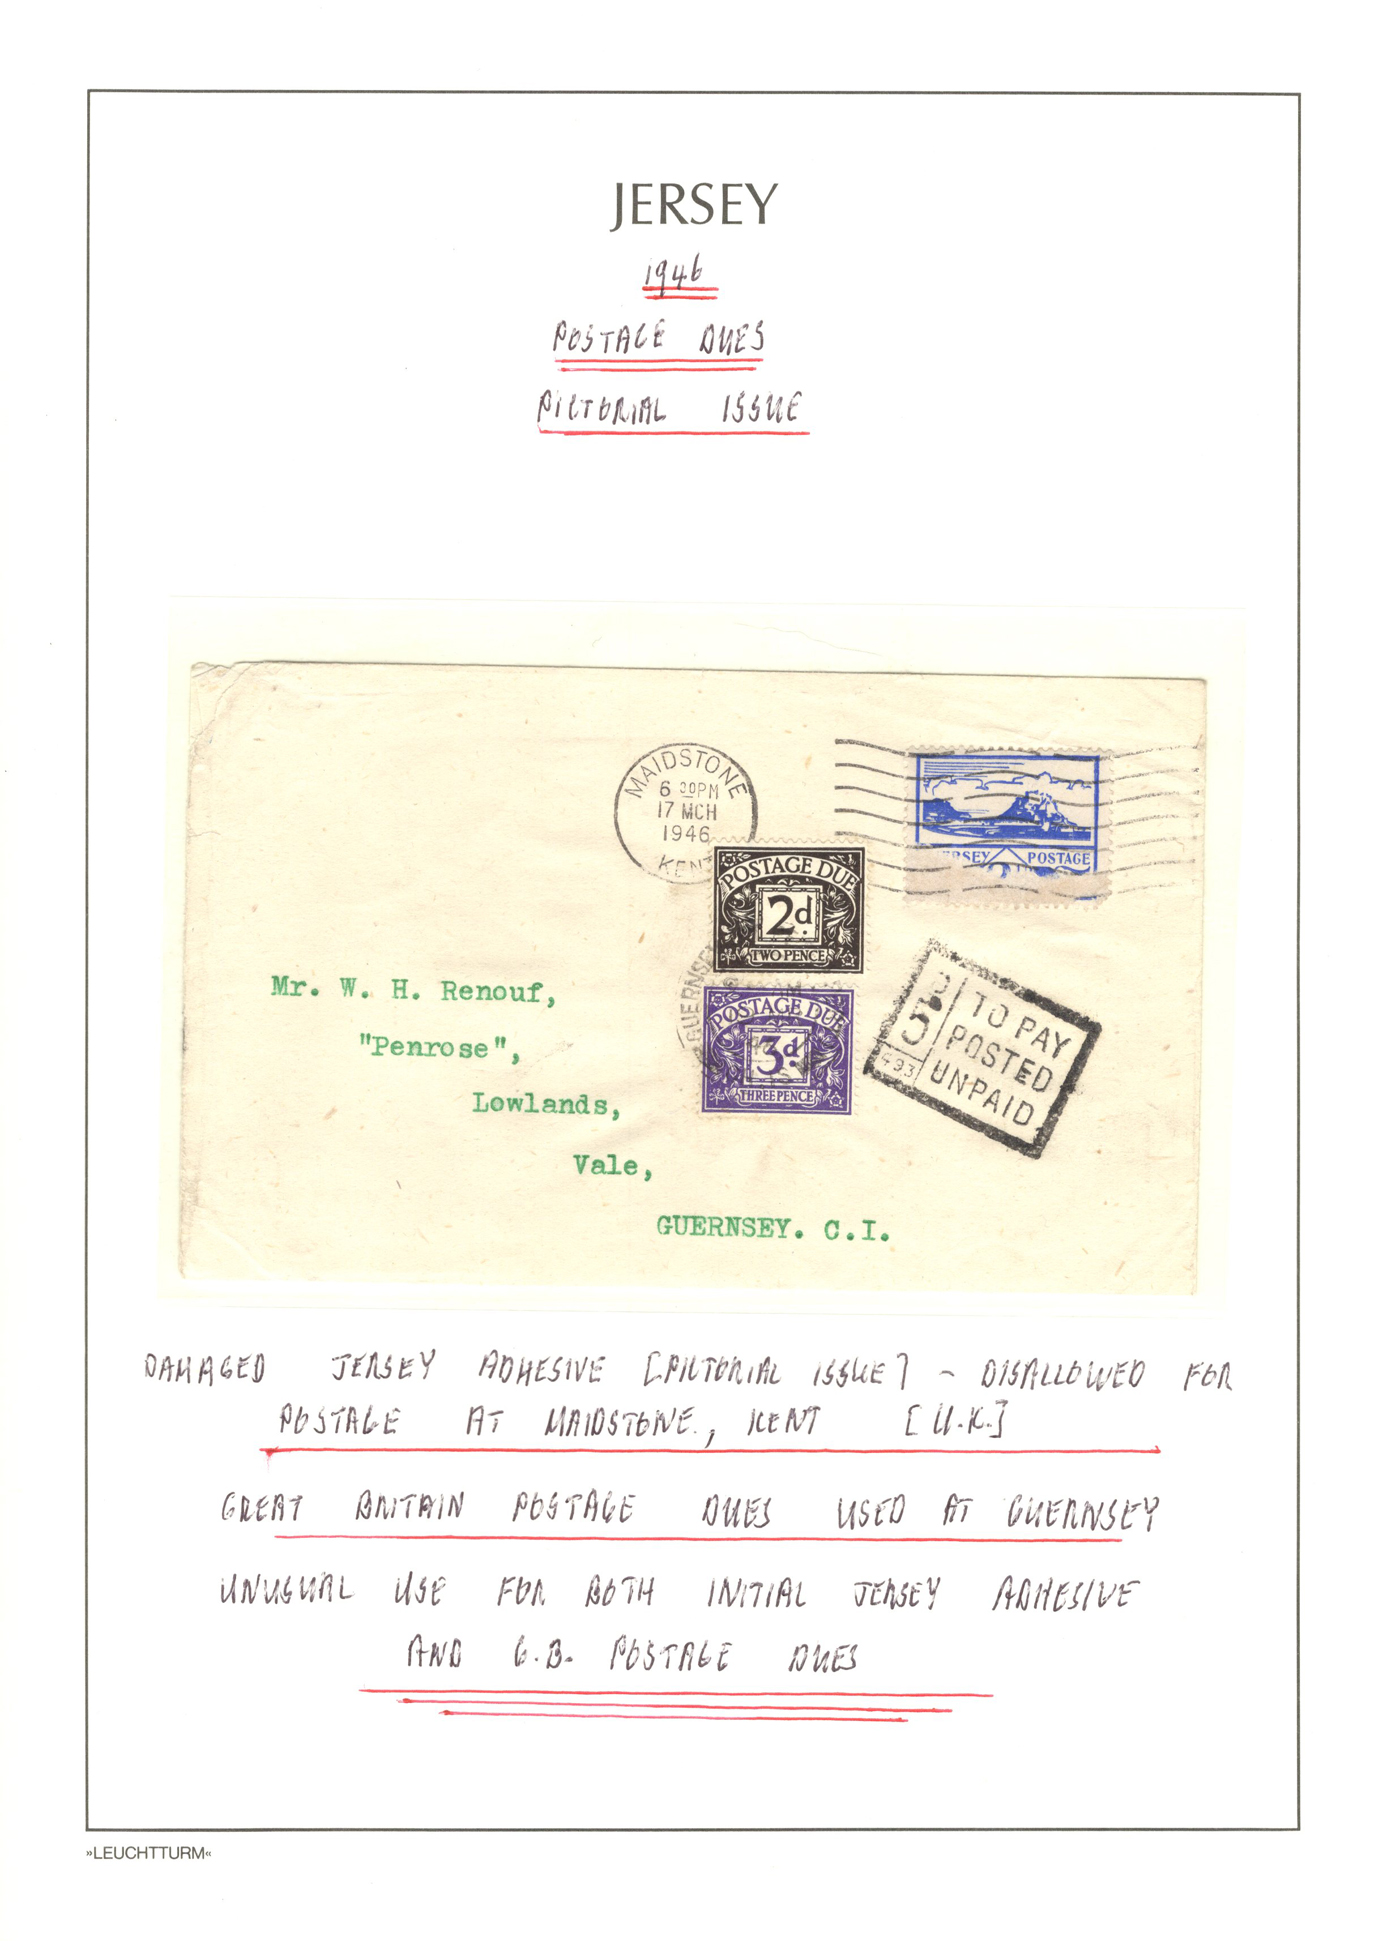 JERSEY
1946
POSTAGE DUES
PICTORIAL ISSUE
MAIDSTONE
6 30PM
17 MCH
1946
KENT
JERSEY POSTAGE
POSTAGE DUE
2d.
TWO PENCE
GUERNSEY
POSTAGE DUE
3d.
THREE PENCE
5D
493
TO PAY
POSTED
UNPAID
Mr. W. H. Renouf,
"Penrose",
Lowlands,
Vale,
GUERNSEY. C.I.
DAMAGED JERSEY ADHESIVE [PICTORIAL ISSUE] - DISALLOWED FOR
POSTAGE AT MAIDSTONE, KENT [U.K.]
GREAT BRITAIN POSTAGE DUES USED AT GUERNSEY
UNUSUAL USE FOR BOTH INITIAL JERSEY ADHESIVE
AND G.B. POSTAGE DUES
»LEUCHTTURM«